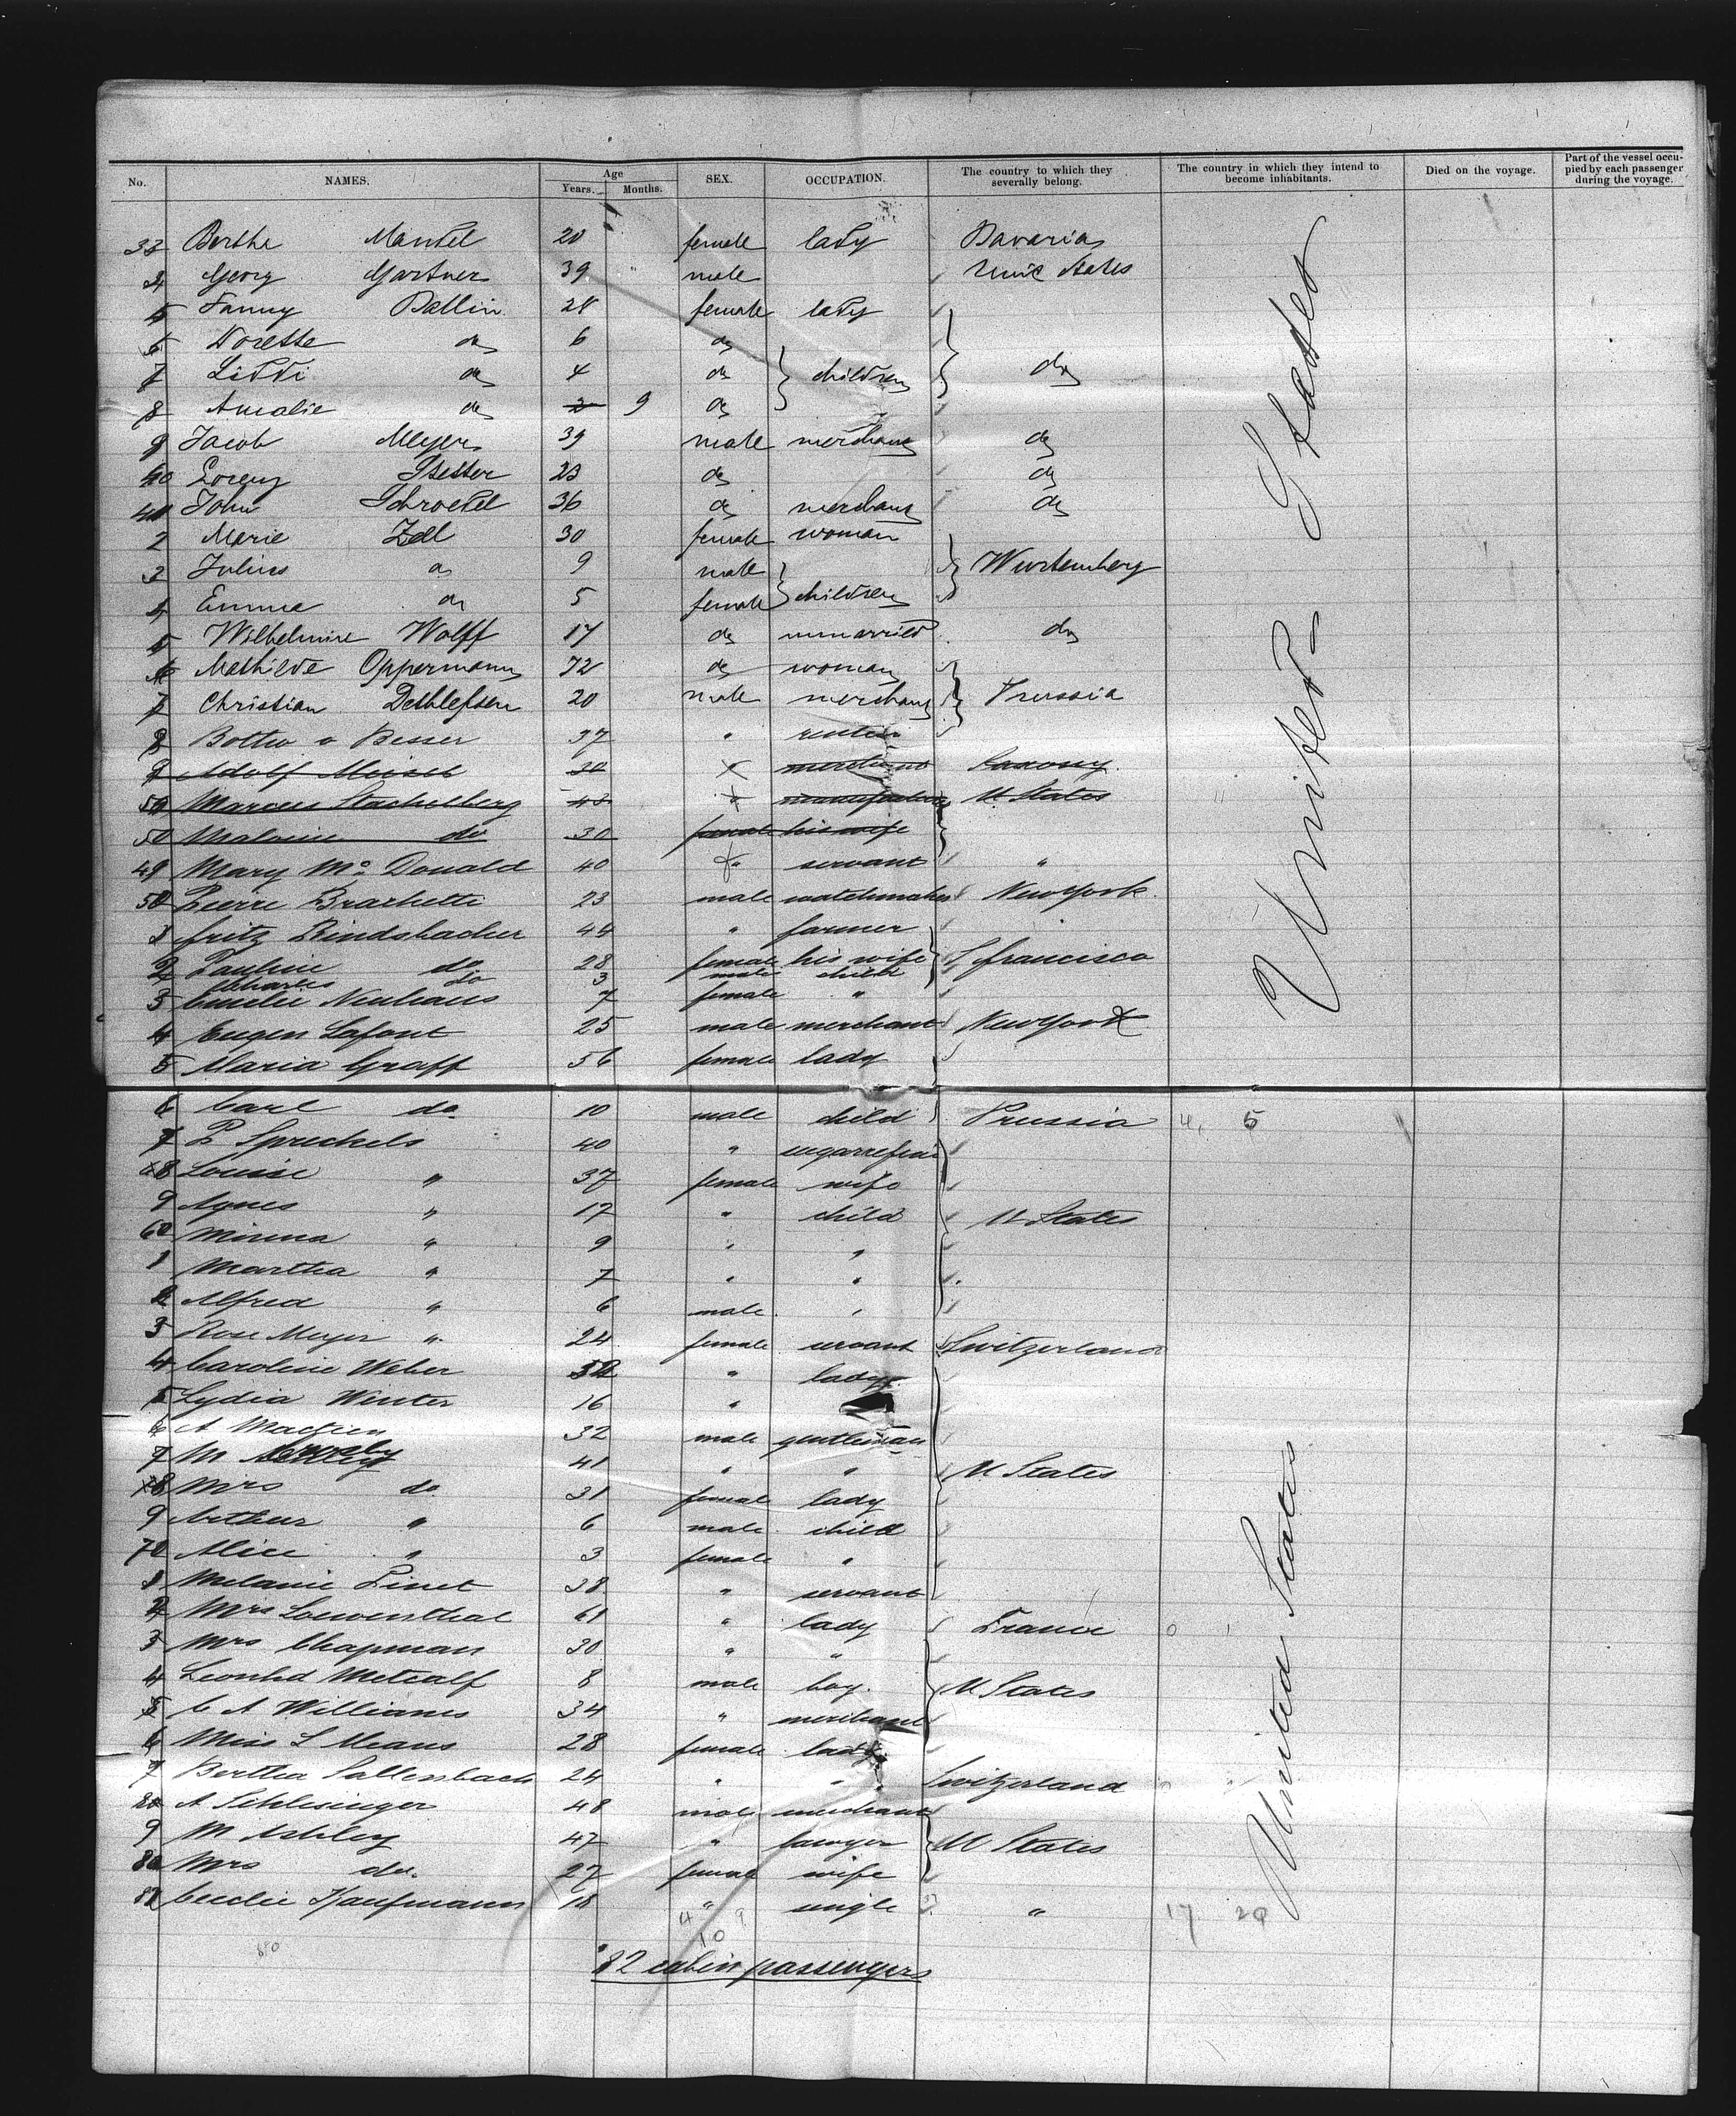 No. NAMES. Age Years. Months. SEX. OCCUPATION. The country to which they severally belong. The country in which they intend to become inhabitants. Died on the voyage. Part of the vessel occupied by each passenger during the voyage.
33 Bertha Mantel 20 female lady Bavaria
4 Georg Gartner 39 male Unit States
5 Fanny Ballin 28 female lady
6 Dorette do 6 do
7 Liddi do 4 do children do
8 Amalie do 2 9 do
9 Jacob Meyer 39 male merchant do
40 Lorenz Stetter 23 do do
41 John Schroedel 36 do merchant do
2 Marie Zell 30 female woman
3 Julius do 9 male Wurtemberg
4 Emma do 5 female children
5 Wilhelmine Wolff 17 do unmarried do
6 Mathilde Oppermann 72 do woman
7 Christian Dethlefsen 20 male merchant Prussia
8 Botho v Besser 37 "
9 Adolf Meisel 30 merchand Saxony
50 Marcus Stachelberg 43 " U States
50 Malvine do 30 female his wife
49 Mary Mc Donald 40 " servant "
50 Pierre Brachette 23 male watchmaker New York
1 Fritz Rindsbacher 44 " farmer
2 Pauline do 28 female his wife S francisco
Charles do 3 male child
3 Amelie Neuhaus 7 female "
4 Eugen Lafont 25 male merchant New York
5 Maria Graff 56 female lady
6 Carl do 10 male child Prussia 4, 5
7 Spreckels 40 " sugarrefin
8 Louise " 37 female wife
9 Agnes " 17 " child U States
60 Minna " 9 " "
1 Martha " 7 " "
2 Alfred " 6 male "
3 Rose Meyer " 24 female servant Switzerland
4 Caroline Weber 32 " lady
5 Lydia Winter 16 "
6 A 32 male gentleman
7 M Crosby 41 " " U States
8 Mrs do 31 female lady
9 Arthur " 6 male child
70 Alice " 3 female "
1 Melanie Pinet 38 " servant
2 Mrs Loewenthal 61 " lady France 0 1
3 Mrs Chapman 30 " "
4 Metcalf 8 male boy U States
5 C A Williams 34 " merchant
6 Miss L Means 28 female lady
7 Bertha Sallenbach 24 " " Switzerland
A Schlesinger 48 male merchant
9 M Ashley 47 " lawyer U States
80 Mrs do. 27 female wife
82 Cecilie Kaufmann 18 " single " 17 20
United States
United States
4 9
10
82 cabin passengers